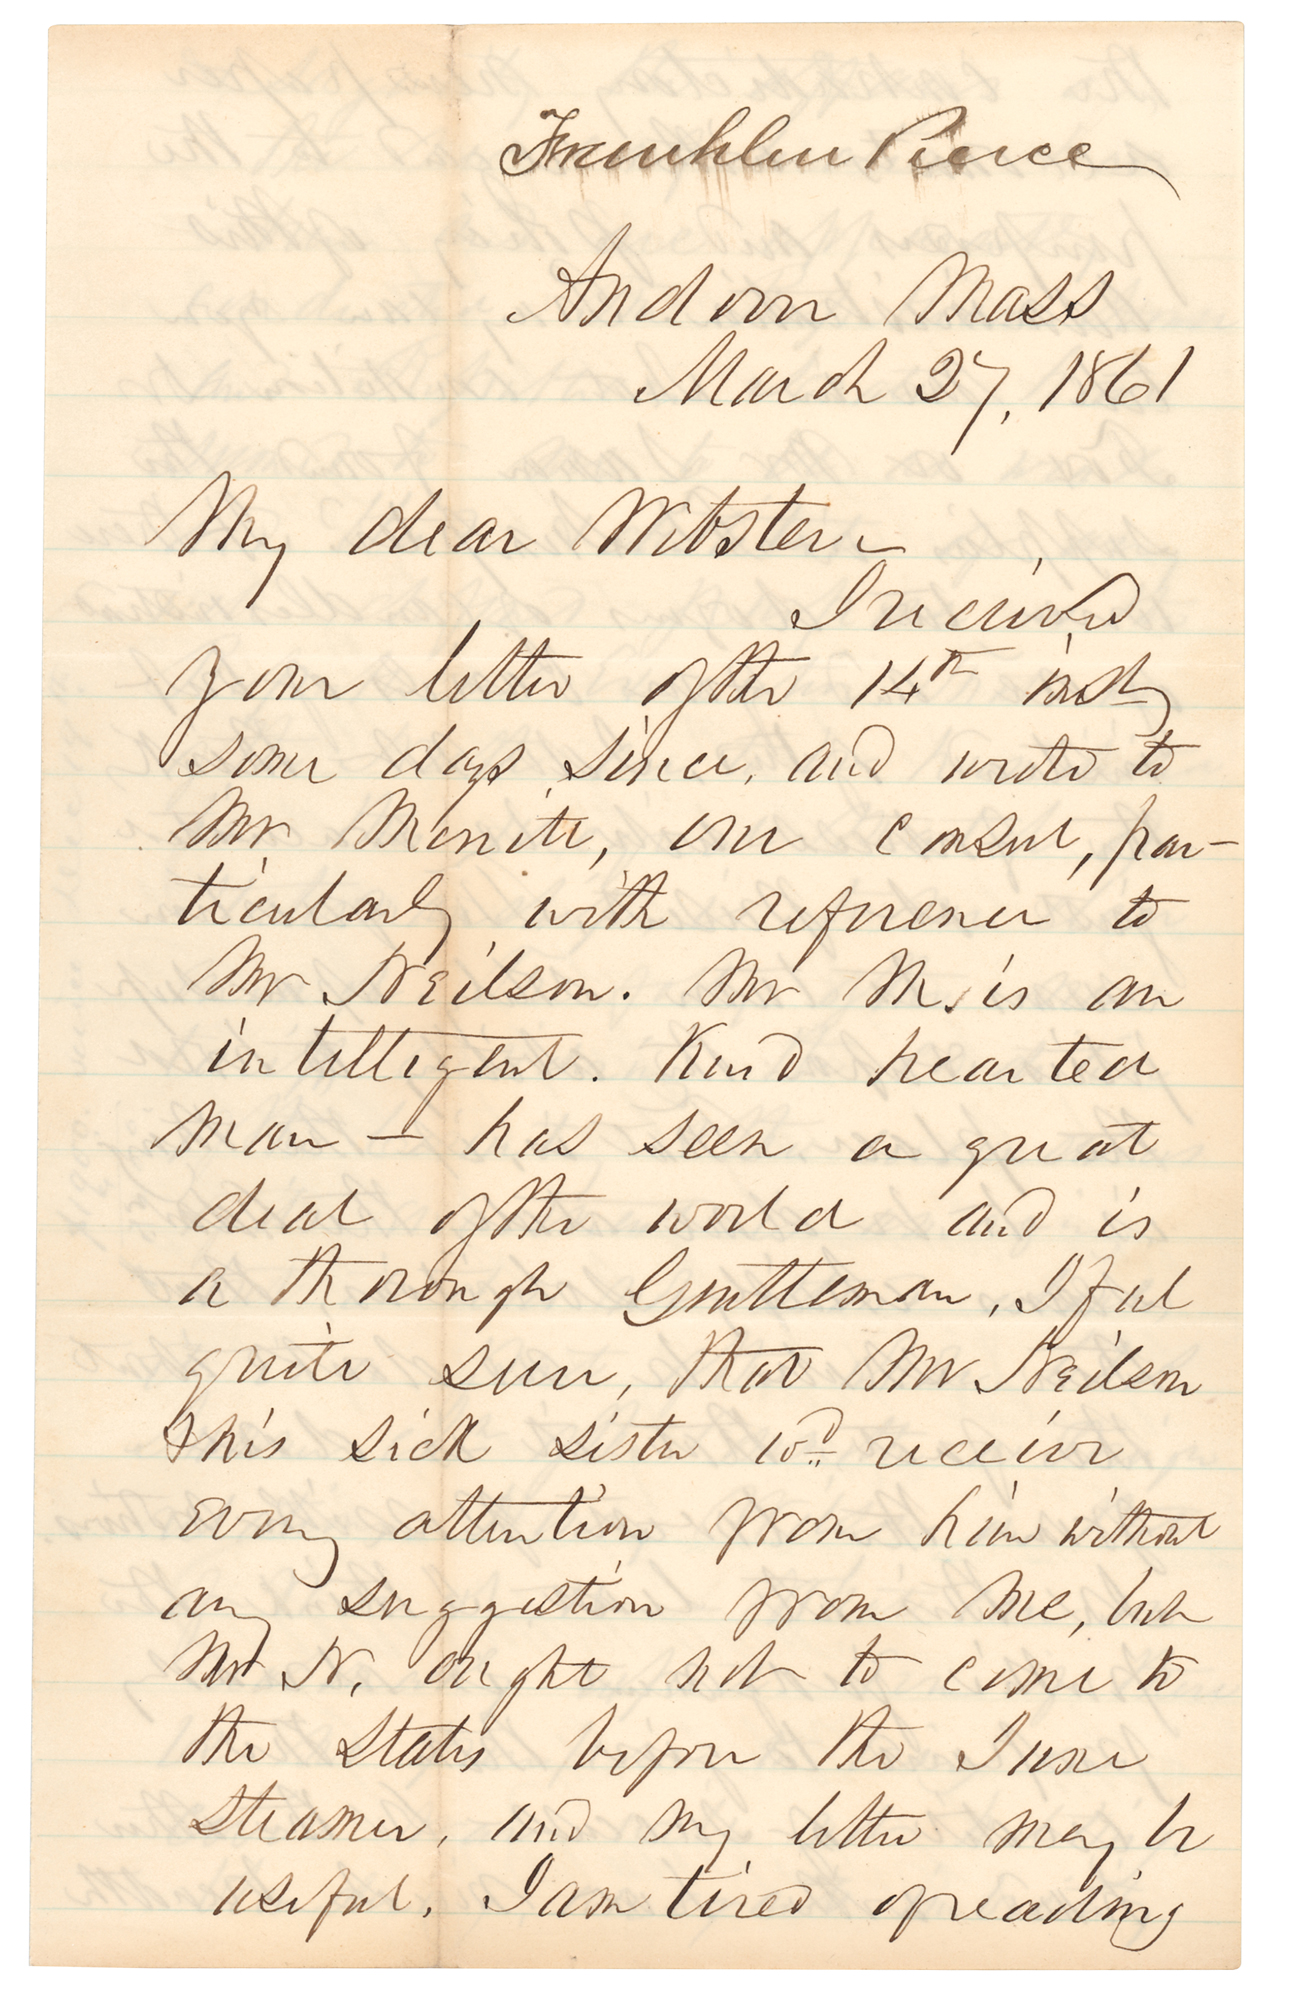 Franklin Pierce
Andover Mass
March 27, 1861
My dear Webster —
I received
your letter of the 14th inst,
some days since, and wrote to
Mr Merrite, our consul, par-
ticularly with reference to
Mr Neilson. Mr M. is an
intelligent. Kind hearted
man — has seen a great
deal of the world and is
a thorough Gentleman, I feel
quite sure, that Mr Neilson
& his sick sister wd receive
every attention from him without
any suggestion from me, but
Mr N. ought not to come to
the States before the June
Steamer, and my letter may be
useful. I am tired of reading